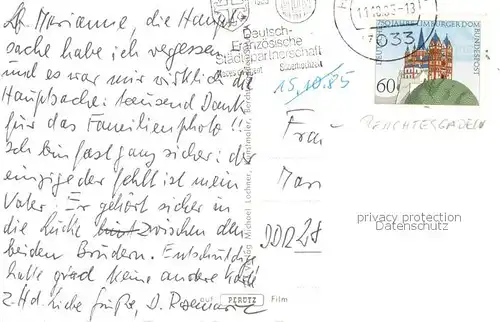 Lb. Marianne, die Haupt-
sache habe ich vergessen
und es war mir wirklich die
Hauptsache: tausend Dank
für das Familienphoto!!
Ich bin fast ganz sicher: der
einzige der fehlt ist mein
Vater: Er gehört sicher in
die Lücke zwischen den
beiden Brüdern. Entschuldige
hatte grad keine andere Karte
z.Hd. liebe Grüße, D. Rosemarie
Deutsch-
Französische
Städtepartnerschaft
7633
750 JAHRE LIMBURGER DOM
DEUTSCHE BUNDESPOST
60
15.10.85
Frau
BERCHTESGADEN
Mar
DDR 28
privacy protection
Datenschutz
Verlag Michael Lochner,
auf PERUTZ Film